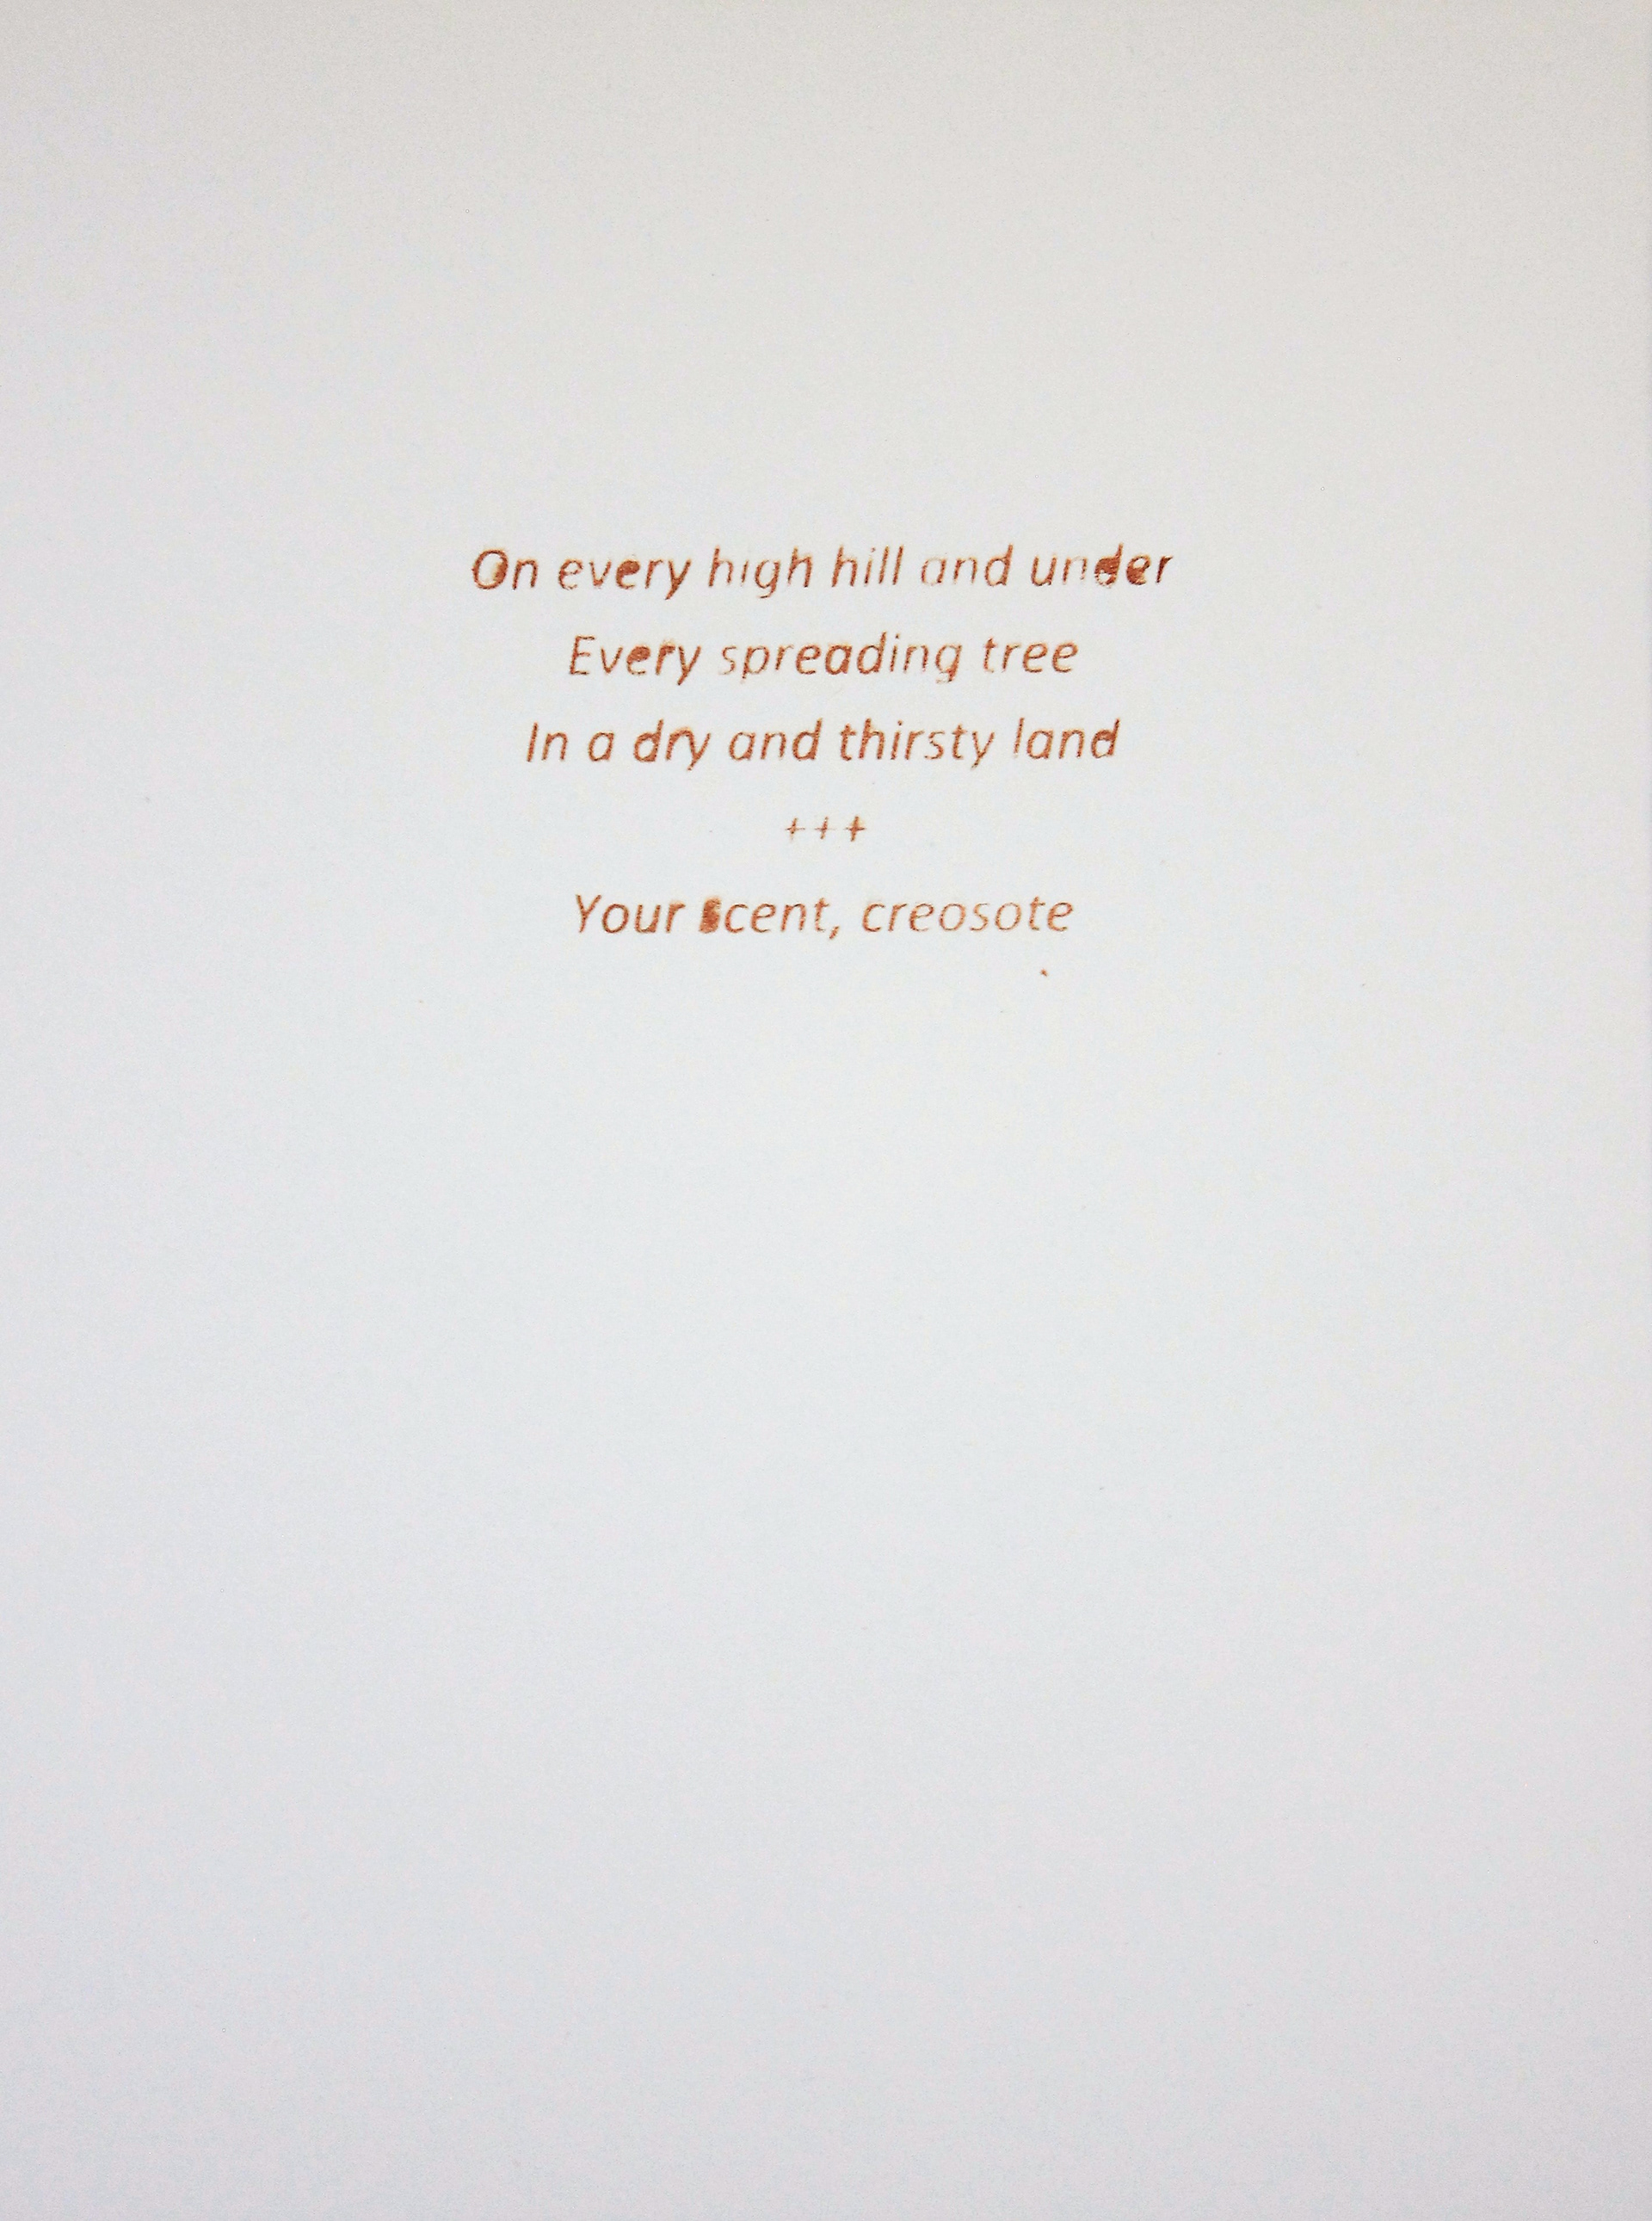 On every high hill and under
Every spreading tree
In a dry and thirsty land
+++
Your scent, creosote